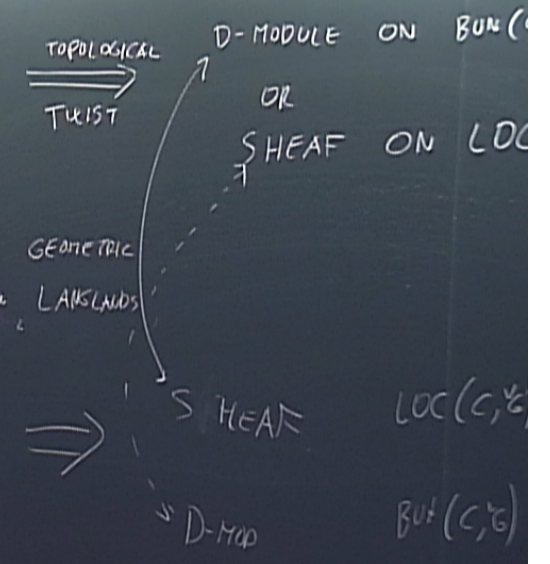 TOPOLOGICAL
TWIST
D-MODULE ON BUN(
OR
SHEAF ON LOC
GEOMETRIC
LANGLANDS
SHEAF LOC(C,ᵛG)
D-MOD BUN(C,ᵛG)